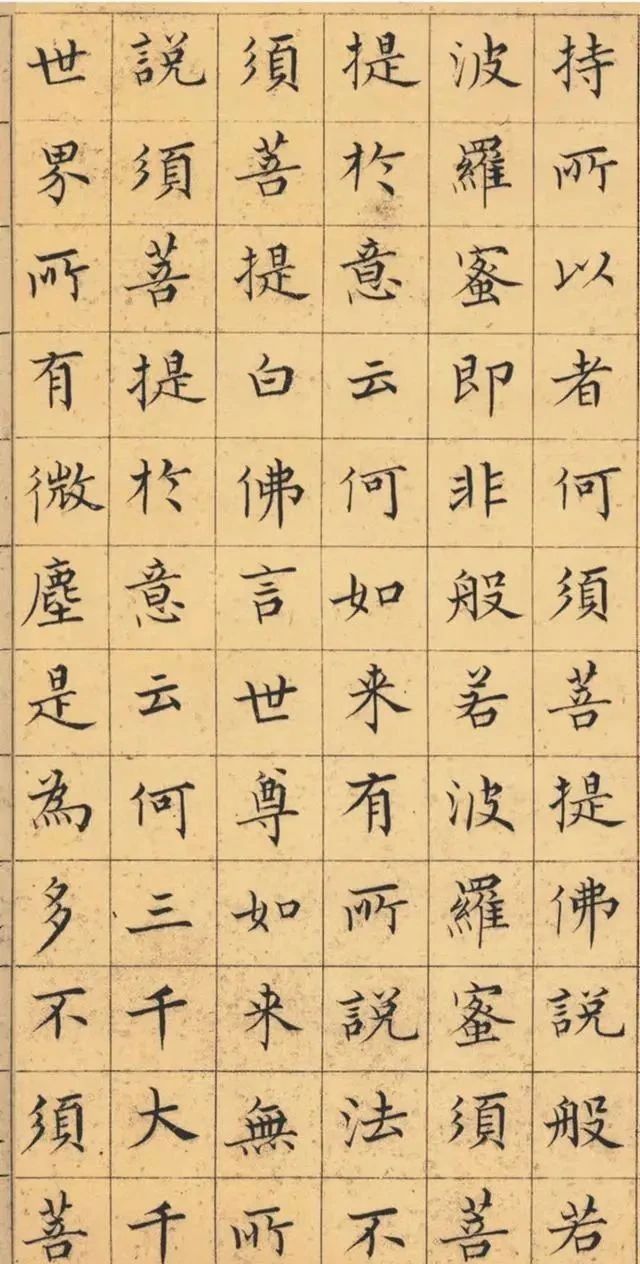 持所以者何須菩提佛說般若
波羅蜜即非般若波羅蜜須菩
提於意云何如来有所說法不
須菩提白佛言世尊如来無所
說須菩提於意云何三千大千
世界所有微塵是為多不須菩